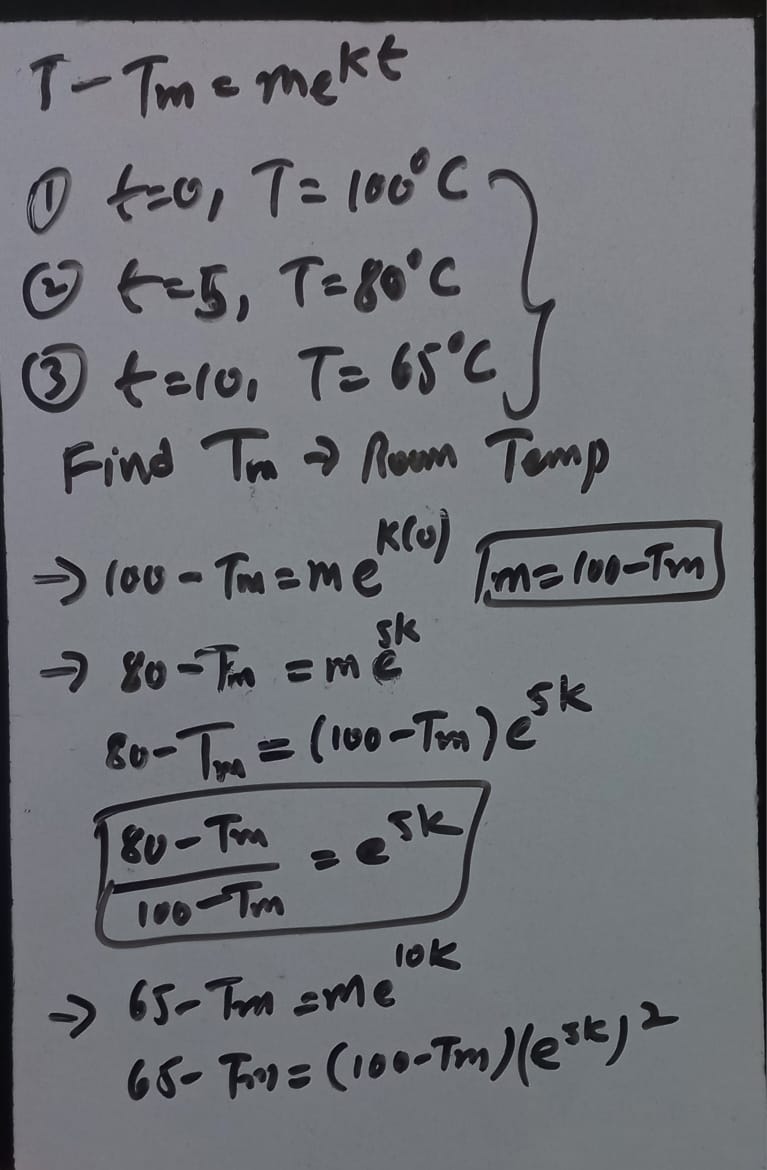 T - Tm = me^kt
① t=0, T= 100°C
② t=5, T=80°C
③ t=10, T= 65°C
Find Tm → Room Temp
⇒ 100 - Tm = me^k(0) m= 100-Tm
→ 80 - Tm = me^5k
80 - Tm = (100-Tm)e^5k
80 - Tm / 100 - Tm = e^5k
→ 65 - Tm = me^10k
65 - Tm = (100-Tm)(e^5k)^2